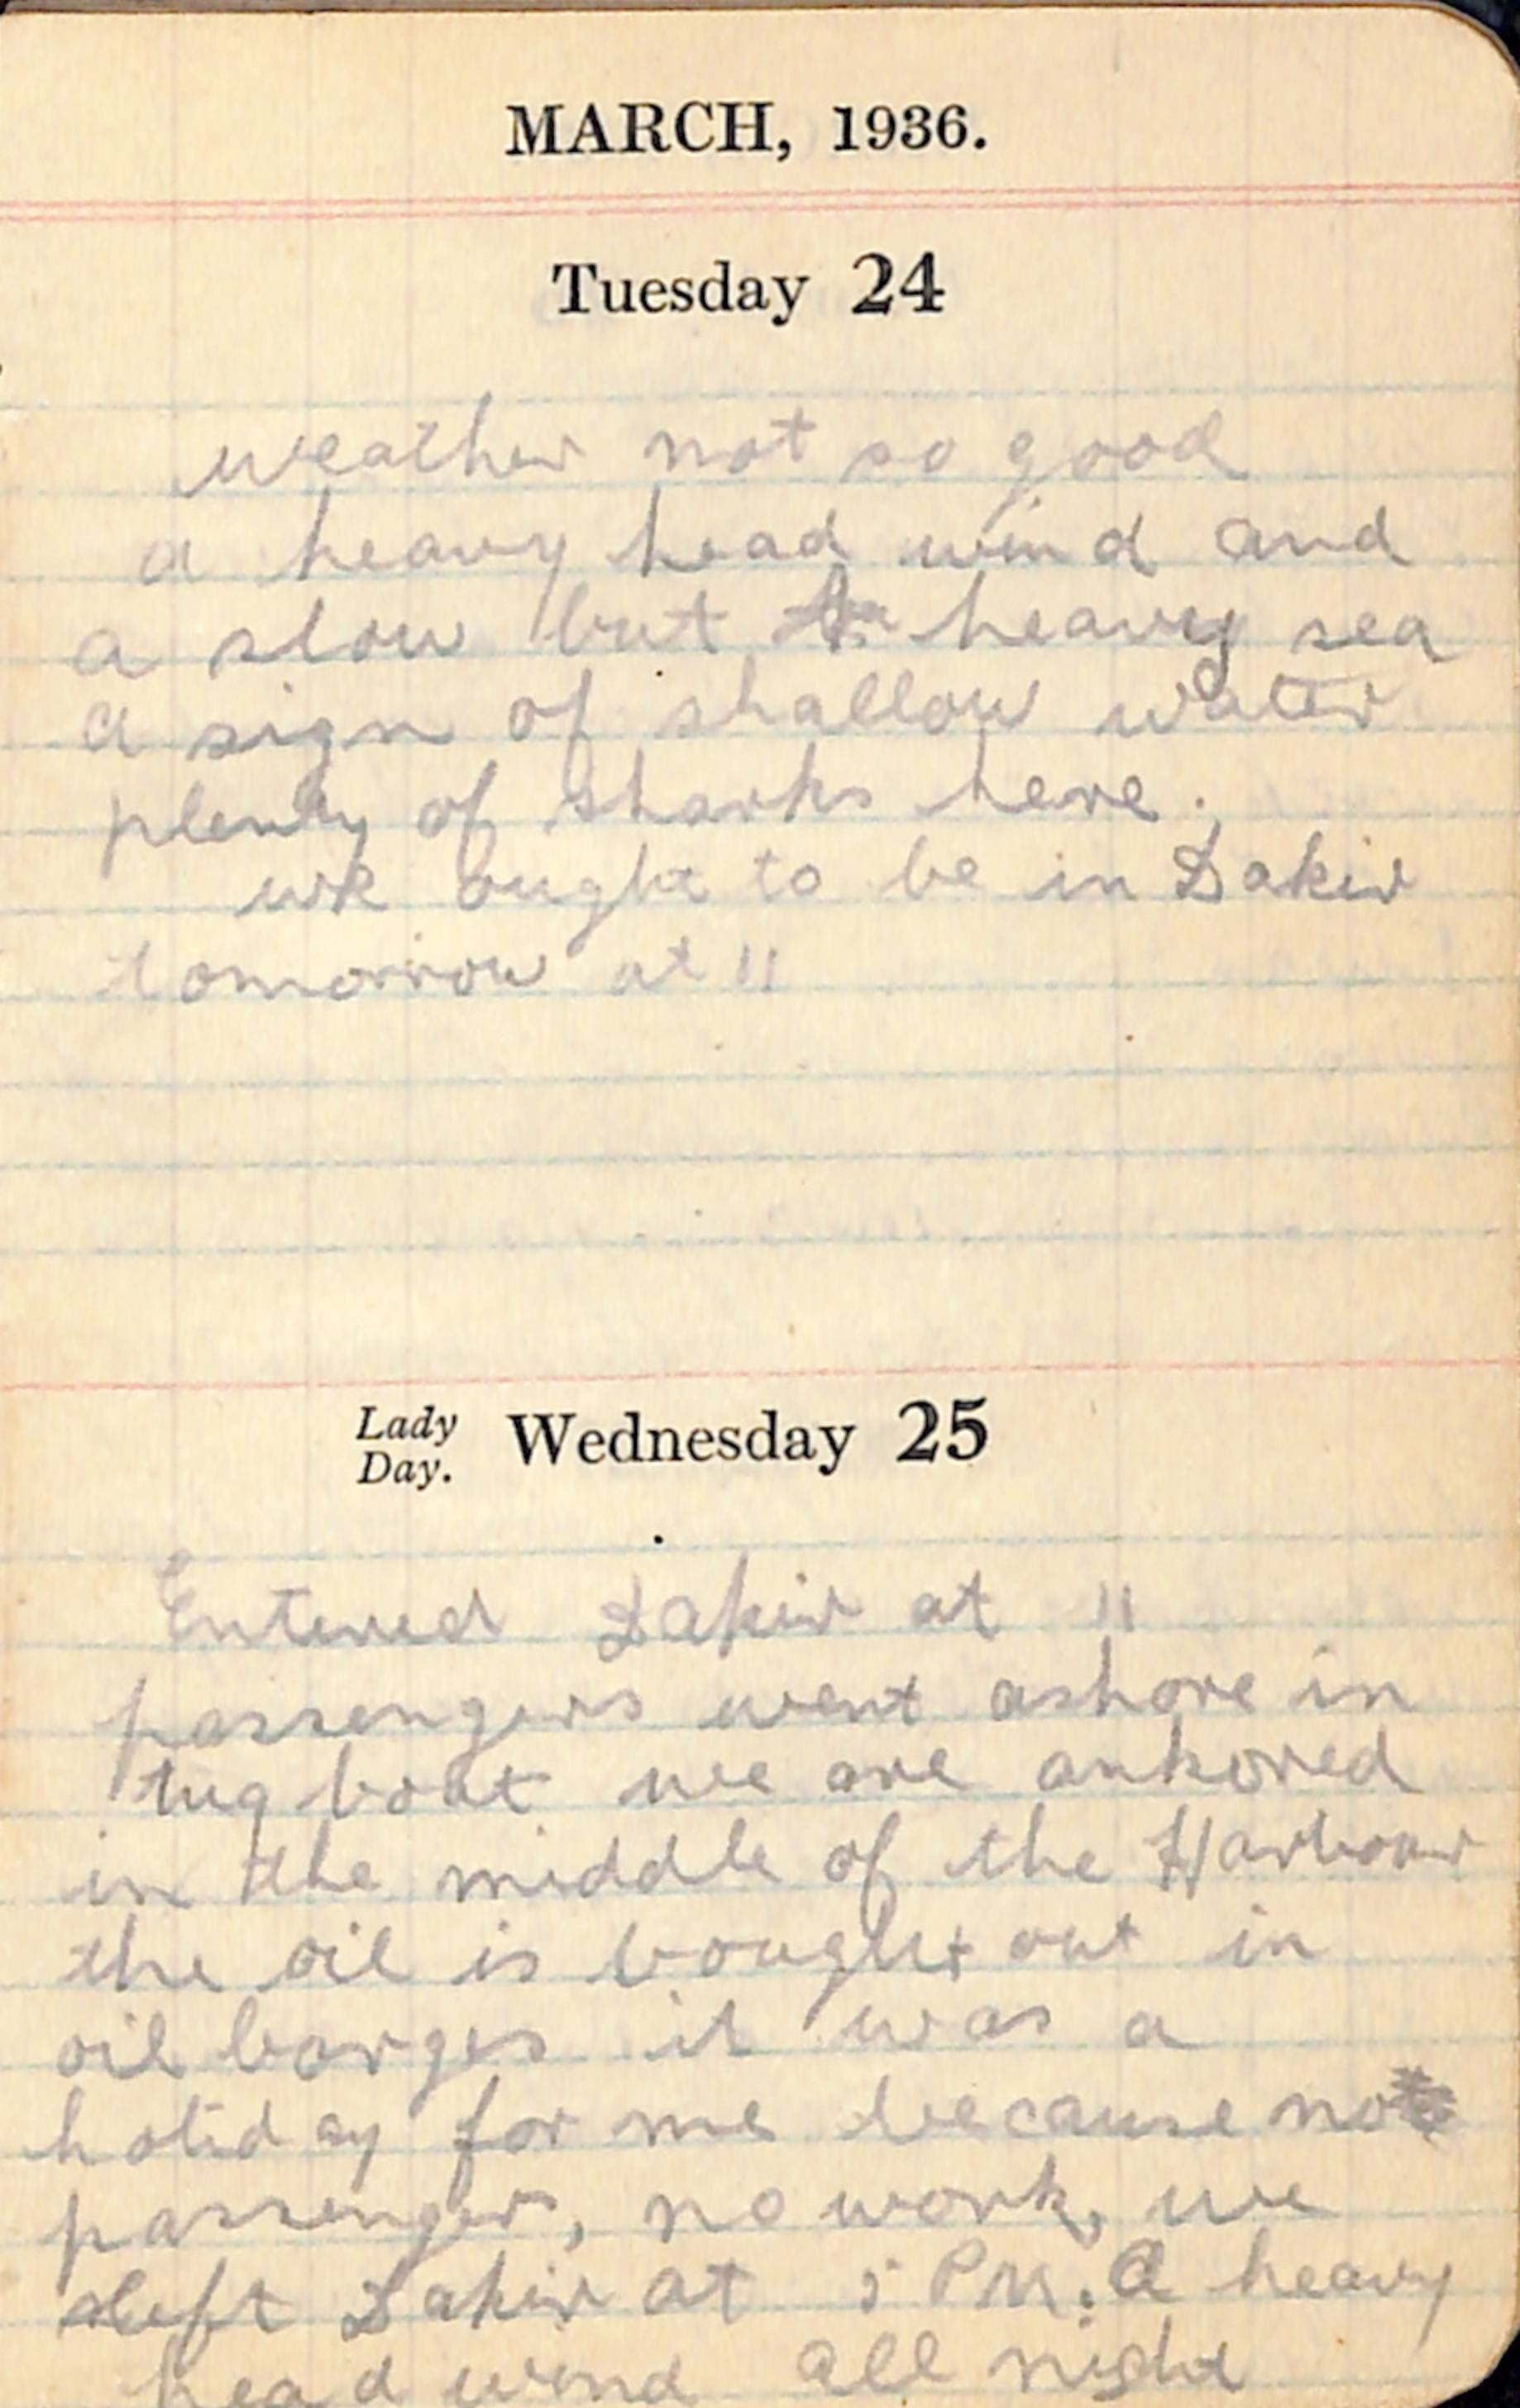 MARCH, 1936.
Tuesday 24
weather not so good
a heavy head wind and
a slow but heavy sea
a sign of shallow water
plenty of sharks here.
we ought to be in Dakir
tomorrow at 11
Lady Day. Wednesday 25
Entered Dakir at 11
passengers went ashore in
tug boat we are ankored
in the middle of the Harbour
the oil is bought out in
oil barges it was a
holiday for me because no
passenger, no work, we
left Dakir at 5 PM. A heavy
head wind all night